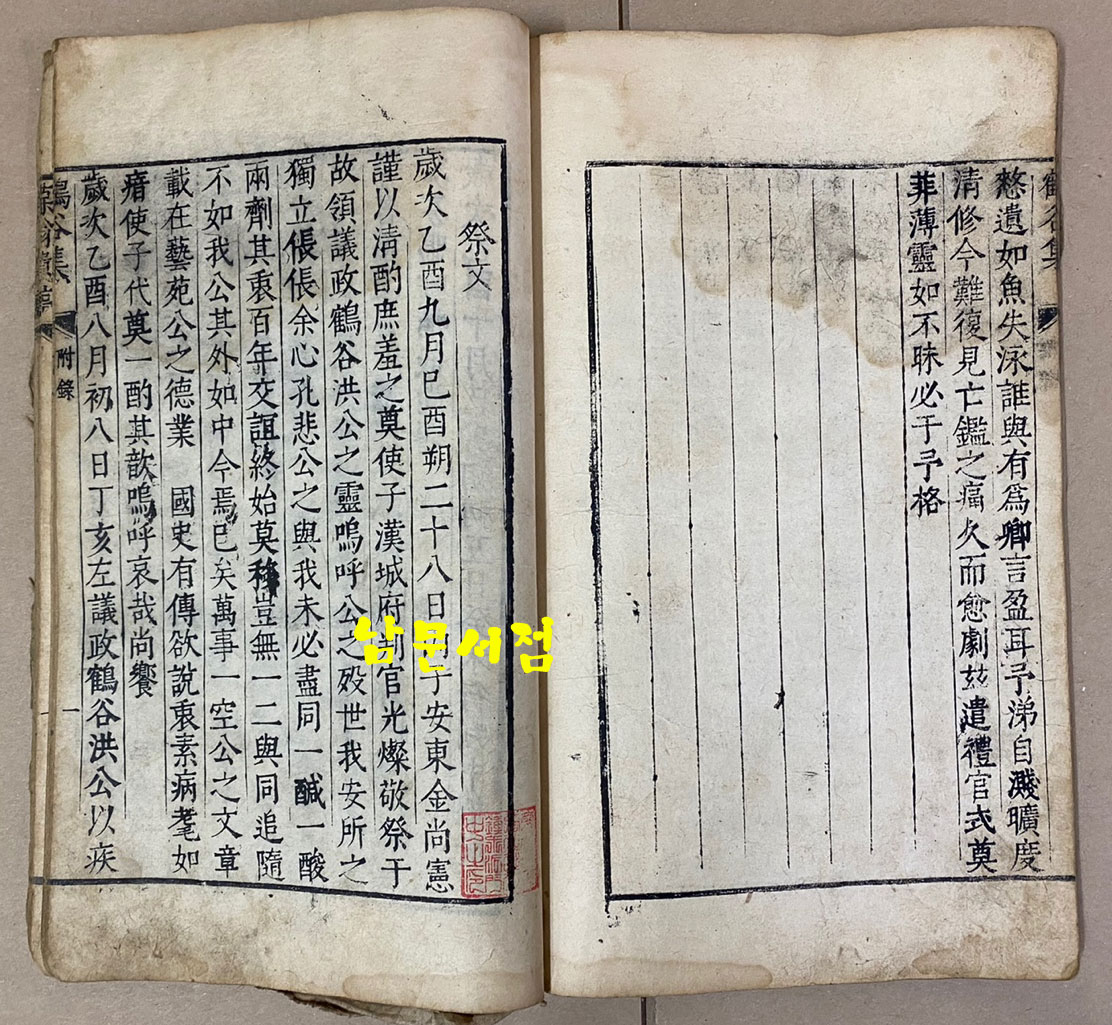 鶴谷集
慭遺如魚失泳誰與有爲卿言盈耳予涕自濺曠度
清修今難復見亡鑑之痛久而愈劇玆遣禮官式奠
菲薄靈如不昧必于予格
祭文
歲次乙酉九月己酉朔二十八日丙子安東金尚憲
謹以清酌庶羞之奠使子漢城府判官光燦敬祭于
故領議政鶴谷洪公之靈嗚呼公之歿世我安所之
獨立倀倀余心孔悲公之與我未必盡同一鹹一酸
兩劑其衷百年交誼終始莫移豈無一二與同追隨
不如我公其外如中今焉已矣萬事一空公之文章
載在藝苑公之德業 國史有傳欲說衷素病耄如
瘖使子代奠一酌其歆嗚呼哀哉尚饗
歲次乙酉八月初八日丁亥左議政鶴谷洪公以疾
鶴谷集
附錄
一
남문서점